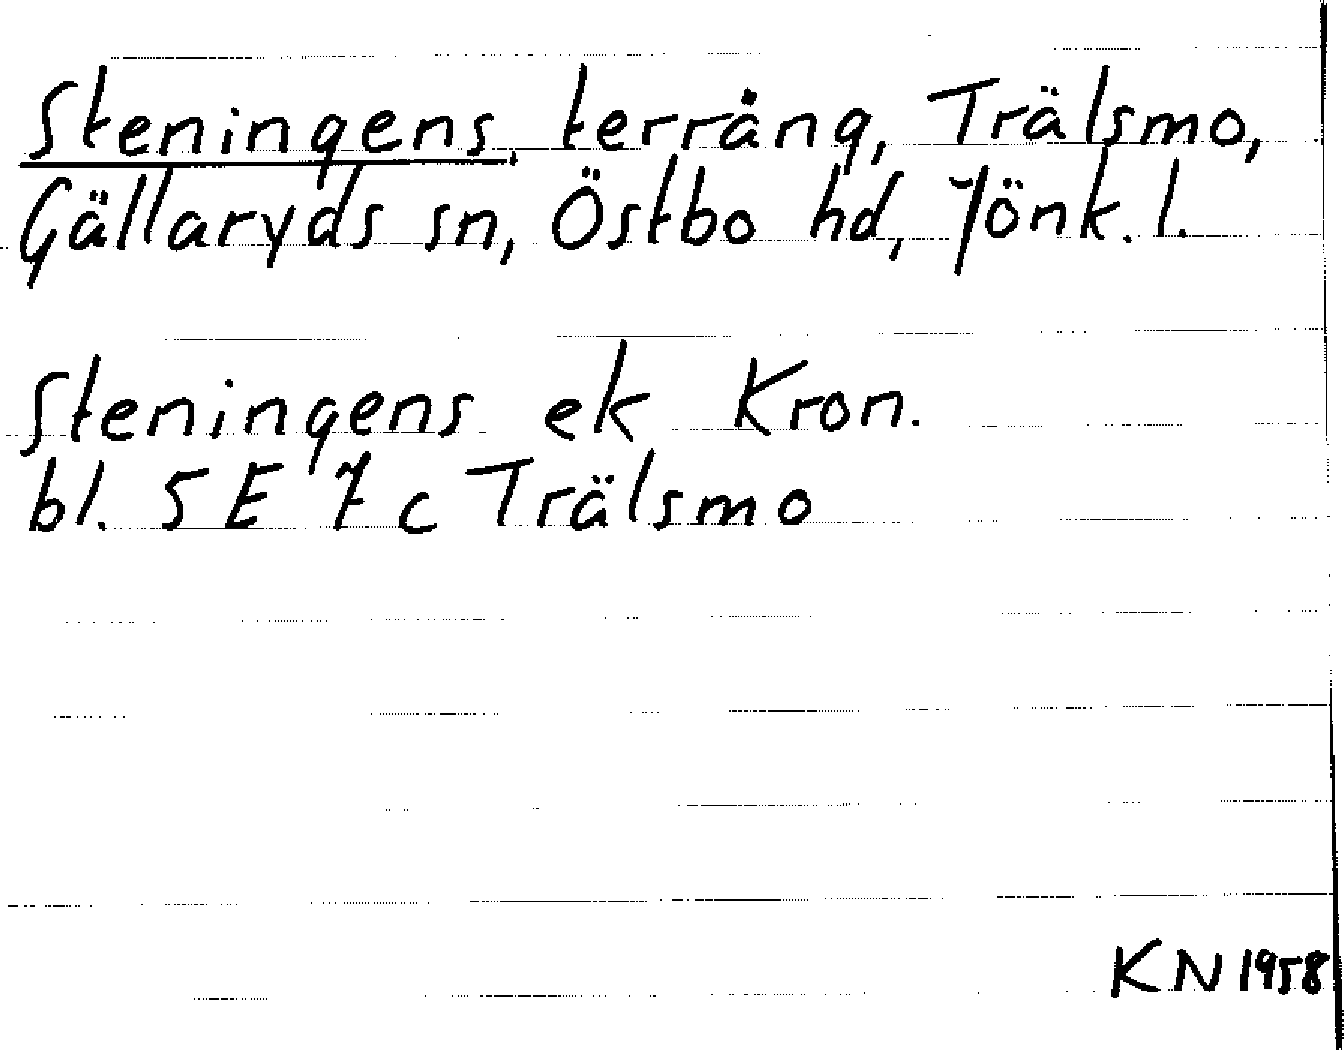 Steningens, terräng, Trälsmo,
Gällaryds sn, Östbo hd, Jönk. l.
Steningens ek Kron.
bl. 5 E 7 c Trälsmo
KN 1958